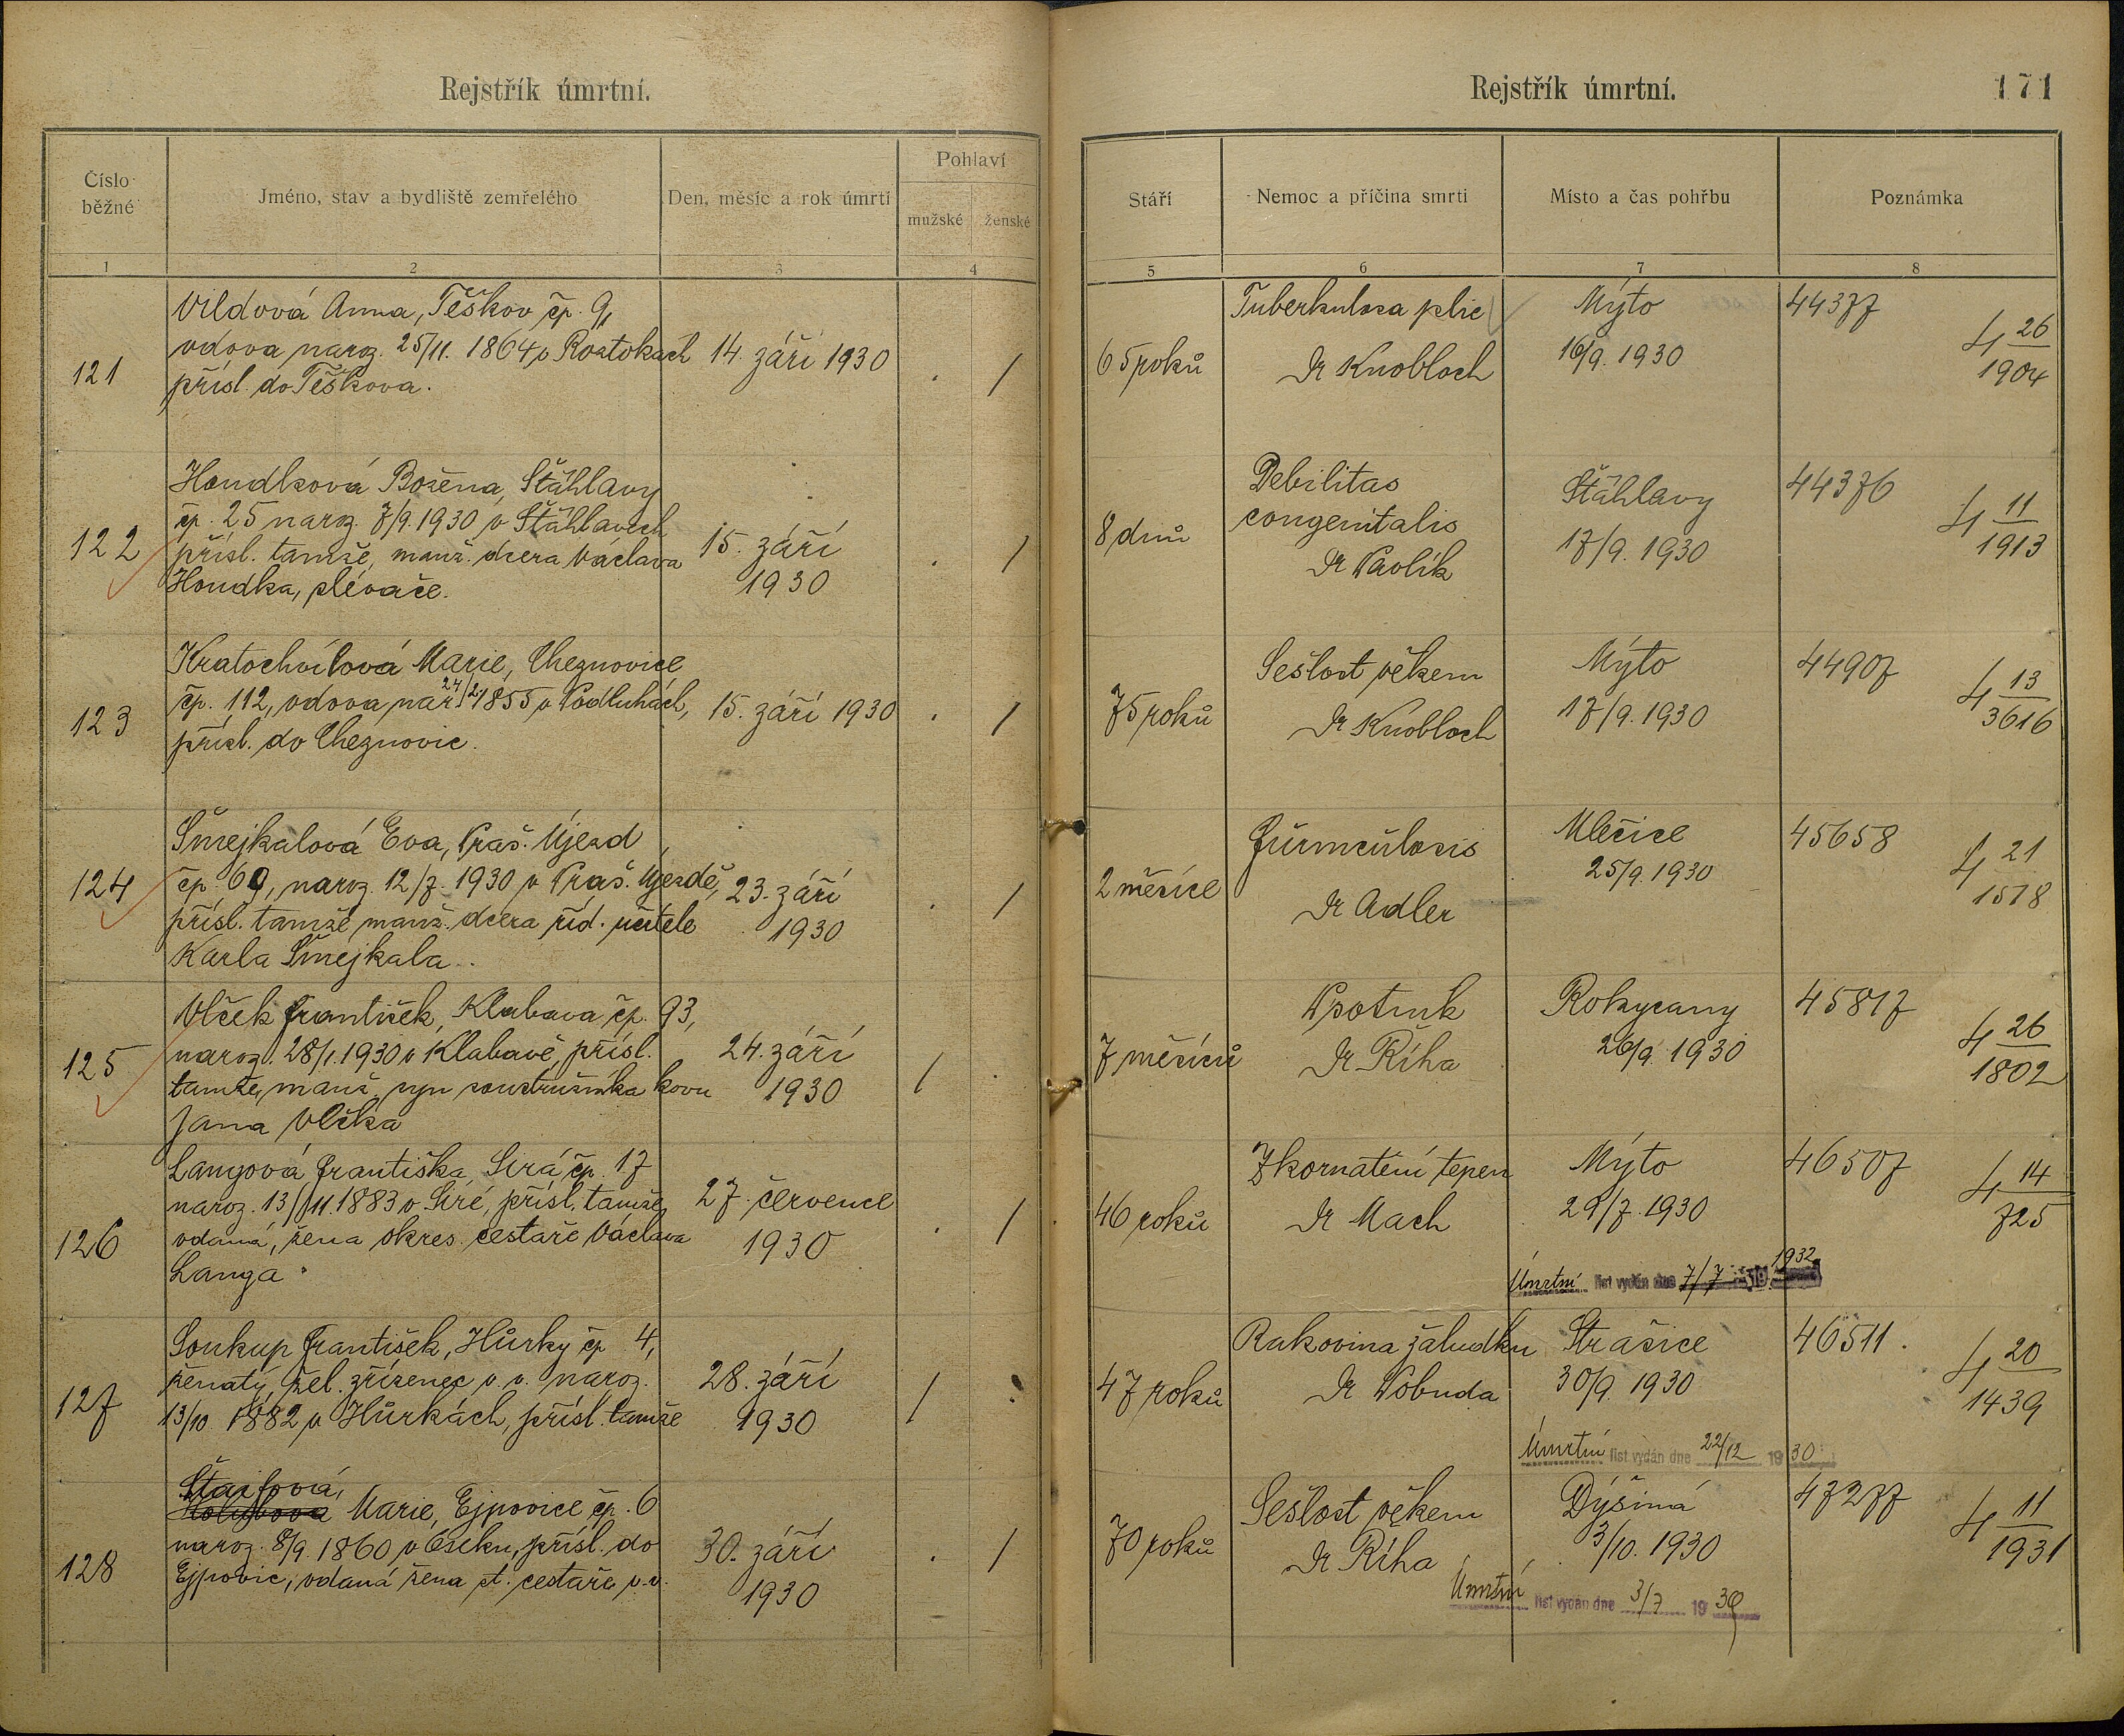 Rejstřík úmrtní.
Číslo běžné
Jméno, stav a bydliště zemřelého
Den, měsíc a rok úmrtí
Pohlaví
mužské
ženské
1
2
3
4
Rejstřík úmrtní.
171
Stáří
Nemoc a příčina smrti
Místo a čas pohřbu
Poznámka
5
6
7
8
121
Vildová Anna, Těškov čp. 9,
vdova naroz. 25/11. 1864 v Roztokách
přísl. do Těškova.
14. září 1930
. /
65 roků
Tuberkulosa plic
Dr Knobloch
Mýto
16/9. 1930
44377
4 26
1904
122
Houdková Božena, Šťáhlavy
čp. 25 naroz. 7/9. 1930 v Šťáhlavech
přísl. tamže, manž. dcera Václava
Houdka, plévače.
15. září
1930
. /
8 dnů
Debilitas
congenitalis
Dr Pavlík
Šťáhlavy
17/9. 1930
44376
4 11
1913
123
Kratochvílová Marie, Cheznovice
čp. 112, vdova nar. 24/2 1855 v Podluhách,
přísl. do Cheznovic.
15. září 1930
. /
75 roků
Sešlost věkem
Dr Knobloch
Mýto
17/9. 1930
44907
4 13
3616
124
Šmejkalová Eva, Praš. Újezd
čp. 69, naroz. 12/7. 1930 v Praš. Újezdě,
přísl. tamže, manž. dcera říd. učitele
Karla Šmejkala.
23. září
1930
. /
2 měsíce
Furunculosis
Dr Adler
Mlečice
25/9. 1930
45658
4 21
1578
125
Vlček František, Klabava čp. 93,
naroz. 28/1. 1930 v Klabavě, přísl.
tamže, manž. syn soustružníka kovu
Jana Vlčka
24. září
1930
/ .
7 měsíců
Psotník
Dr Říha
Rokycany
26/9. 1930
45817
4 26
1802
126
Langová Františka, Sirá čp. 17
naroz. 13/11. 1883 v Siré, přísl. tamže,
vdaná, žena okres. cestaře Václava
Langa.
27. července
1930
. /
46 roků
Zkornatění tepen
Dr Mach
Mýto
29/7. 1930
46507
4 14
725
Úmrtní list vydán dne 7/7 1932
127
Soukup František, Hůrky čp. 4,
ženatý, žel. zřízenec v. v. naroz.
13/10. 1882 v Hůrkách, přísl. tamže
28. září
1930
/ .
47 roků
Rakovina žaludku
Dr Vobuda
Strašice
30/9. 1930
46511.
4 20
1439
Úmrtní list vydán dne 22/12 1930
128
Štaifová,
Marie, Ejpovice čp. 6
naroz. 8/9. 1860 v Oseku, přísl. do
Ejpovic, vdaná žena st. cestaře v.v.
30. září
1930
. /
70 roků
Sešlost věkem
Dr Říha
Dýšiná
3/10. 1930
47277
4 11
1931
Úmrtní list vydán dne 3/7 1939